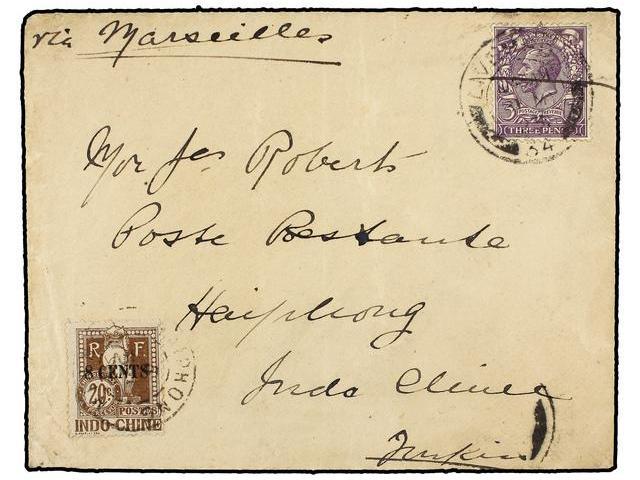 via Marseilles
LIVE
3
THREE PENCE
34
Mr Jas Roberts
Poste Restante
Haiphong
Indo Chine
Tonkin
R F
8 CENTS
20
POSTES
INDO-CHINE